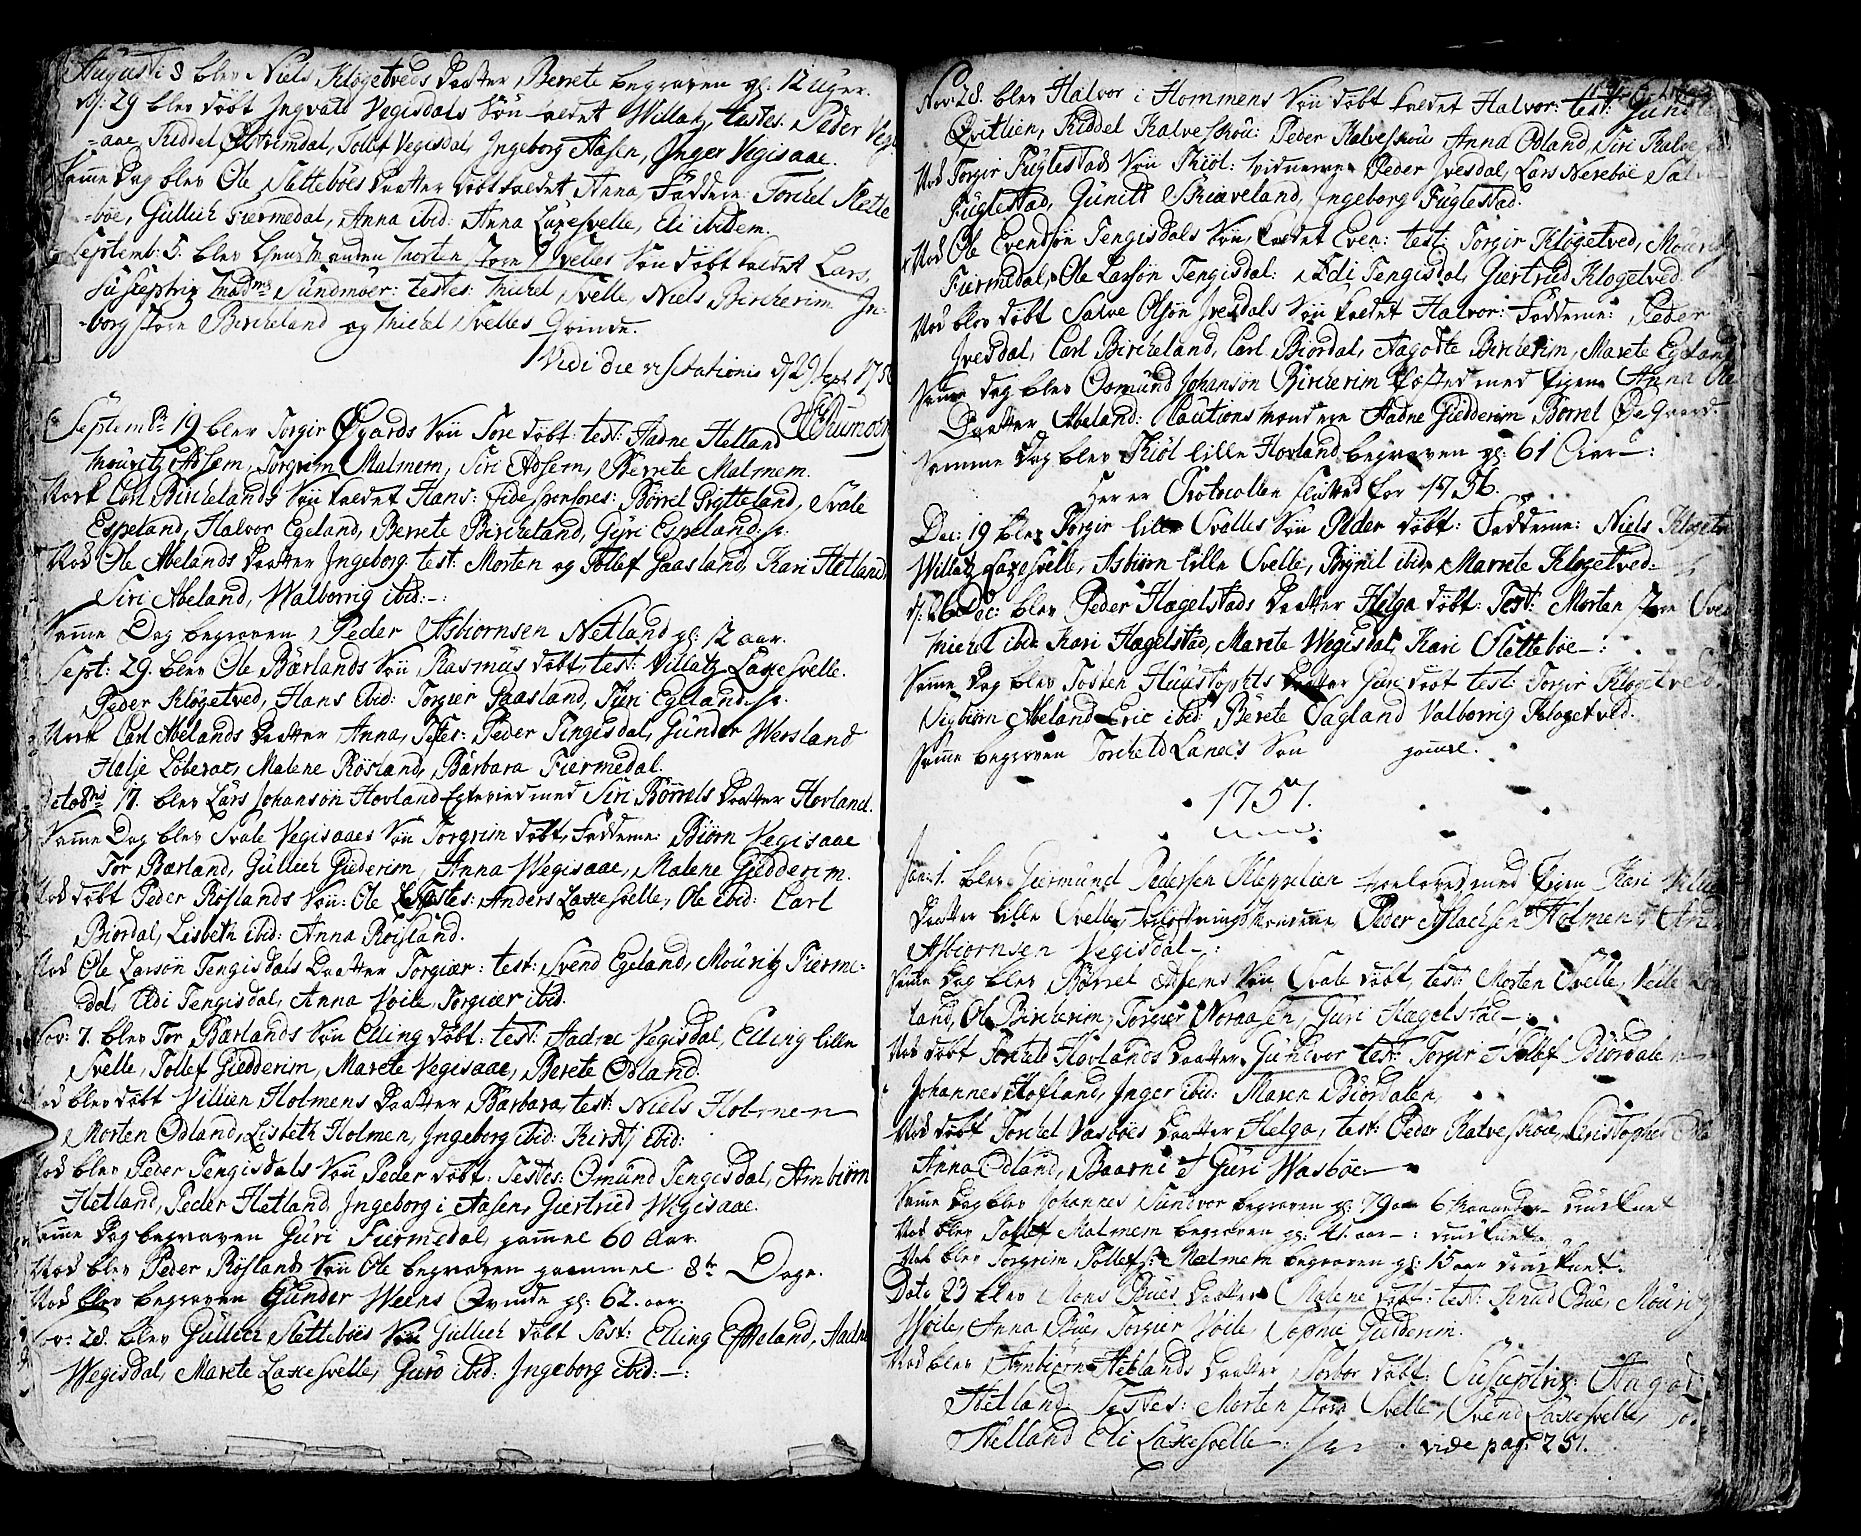 Augusti 8 blev Niels Klogetveds Daatter Berrete begraven gl: 12 uger.
d: 29 blev døbt Ingvald Vegisdals Søn kaldet Willatz, testes: Peder Vegis
-aae, Riddel Østrimdal, Tollef Vegisdal, Ingeborg Aasen, Inger Vegisaae.
Samme Dag blev Ole Slettebøes Daatter døbt kaldet Anna, Fadderne: Torchel Slette
-bøe, Gullich Fiermedal, Anna ibid: Anna Laxesvelle, Eli ibidem.
Septemb: 5. blev Morten store Svelles Søn døbt kaldet Lars,
Susceptrix Mad: Sundmoer: testes: Michel Svelle, Niels Bircherim In-
-borg store Bircheland og Michel Svelles Qvinde.
Vidi die visitationis d 29 Sept 1756
Septembr 19 blev Torgir Øgards Søn Tore døbt: test: Aadne Helland
Mouritz Adsem, Torgrim Malmem, Siri Adsem, Berrete Malmem.
Nock Carl Birchelands Søn kaldet Hans: Fidejussores: Børrel Prytteland, Svale
Espeland, Halvor Egeland, Berrete Bircheland, Gyri Espeland
Nod Ole Abelands Daatter Ingeborg test: Morten og Tollef Gaasland, Kari Hetland,
Siri Abeland, Walborrig ibid:-:
Samme Dag begraven Peder Asbiornsen Netland gl: 12 aar.
Sept: 29. blev Ole Bårlands Søn Rasmus døbt, test: Villatz Laxesvelle.
Peder Klogetved, Hans ibid: Torgier Gaasland, Siri Egeland
Nock Carl Abelands Daatter Anna, Testes: Peder Tingisdal, Gunder Versland
Halje Løberac, Malene Røsland, Barbara Fiermedal.
17. blev Lars Johansøn Hovland Egteviedmed Siri Børrels Daatter Hovland.
Samme Dag blev Svale Vegisaaes Søn Torgrim døbt, Fadderne: Biørn Vegisaae
Tor Bærland, Gullich Giederim, Anna Wegisaae, Malene Giedderim.
Nod døbt Peder Røslands Søn: Ole Testes: Anders Laxesvelle, Ole ibid: Carl
Biordal, Lisbeth ibid: Anna Røisland.
Nod Ole Larsøn Tengisdals Daatter Torgier: test: Svend Egeland, Mouritz Fierme-
dal, Eldi Tengisdal, Anna Voile, Torgier ibid.
Nov: 7. blev Tor Bærlands Søn Elling døbt: test: Aadne Vegisdal, Elling lille
Svelle, Tollef Giedderim, Marete Vegisaae, Berete Ødland.
Nod blev døbt Villum Holmens Daatter Barbara, test: Niels Holmen
Morten Ødland, Lisbeth Holmen, Ingeborg ibid: Kirstj ibid:
Nod blev Peder Tengisdals Søn Peder døbt: Testes: Omund Tengisdal, Arnbiørn
Hetland, Peder Hetland, Ingeborg i Aasen, Giertrud Wegisaae.
Samme Dag begraven Guri Fiermedal, gammel 60 Aar.
Nod blev Peder Røslands Søn Ole begraven gammel 8te Dage.
Nod blev begraven Gunder Weens Qvinde gl: 62. aar.
Nov: 28. blev Gullich Slettebøes Søn Gullich døbt Test: Elling Efteland, Aadne
Wegisdal, Marete Laxesvelle, Guro ibid: Ingeborg ibid:-:
Nov: 28. blev Halvor i Hommens Søn døbt kaldet Halvor: test:
Qvitlien, Riddel Kalveskou: Peder Kalveskou Anna Ødland, Siri Kalve
Nod Torgir Fuglestads Søn Thiøl: vidnerne Peder Ivesdal, Lars Nerebøe
Fuglestad, Gunild Skiæveland, Ingeborg Fuglestad.
Nod Ole Evendsøn Tengisdals Søn, kaldet Even: test: Torgir Klogetved, Mouritz
Fiermedal, Ole Larsøn Tengisdal: Eldi Tengisdal, Giertrud Klogetved.
Nod blev døbt Salve Olsøn Ivesdals Søn kaldet Halvor: Fadderne: Peder
Ivesdal, Carl Bircheland, Carl Biordal, Aagodte Bircherim, Marete Egeland
Samme dag blev Osmund Johansøn Bircherim fæsted med Pigen Anna
Daatter Abeland: Cautions mændene Aadne Giedderim Børrel Øegaard.
Samme Dag blev Thiøl lille Hovland begraven gl: 61 Aar-:
Her er Protocollen sluttet for 1756.
Dec: 19 blev Torgir lille Svalles Søn Peder døbt: Fadderne: Niels Klogetv
Willatz Laxesvelle, Asbiørn lille Svelle, Brynil ibid, Marrete Klogetved
d: 26 Dec: blev Peder Hægelstads Daatter Helga døbt: Test: Morten store Sve
Michel ibid: Kari Hægelstad, Marete Wegisdal, Kari Slettebøe-:
Samme Dag blev Tosten Huustoptes Daatter Guri døbt test: Torgir Klogetved
Sigbiørn Abeland Eric ibid: Berete Tagland Valborrig Klogetved.
Samme begraven Torcheld Søn gamel.
1757.
Jan: 1. blev Giermund Pedersen Kleppelien trolovedmed Pigen Kari
Daatter lille Svelle, Peder Aslachsen Holmen
Asbiornsen Vegisdal-:
Samme Dag blev Børrel Adsems Søn Svale døbt, test: Morten Svelle,
land, Ole Bircherim, Torgier Noraasen, Guri Hægelstad-
Nod døbt Torkels Hovlands Daatter Gunvor test: Torgir & Tollef Biørdalen
Johannes Hofland, Inger ibid: Maren Biordalen,
Nod døbt Torchel Vasbøes Daatter Helga, test: Peder Kalveskou, Christopher
Anna Ødland, Baarni & Guri Wasbøe-
Samme Dag blev Johannes Sundvor begraven gl: 79 aar 6 Maaneder- druknet
Nod blev Tollef Malmem begraven gl: 41. aar-: druknet.
Nod blev Torgrim Tollefs: Malmem begraven gl: 15 aar druknet.
Dato 23 blev Mons Bues Daatter Malene døbt: test: Knud Bue, Mouritz
Woile, Anna Bue, Torgier Voile, Sophie Giedderim.
Nod blev Arnbiørn Hetlands Daatter Torbor døbt: Susceptrix:
Hetland: Testes: Morten store Svelle, Svend Laxesvelle,
Helland Eli Laxesvelle-: vide pag: 251.